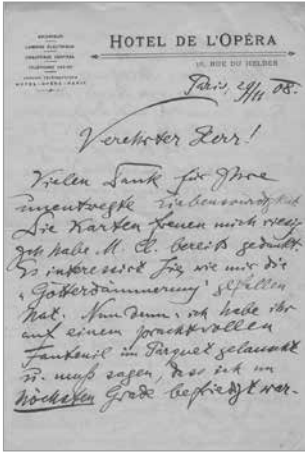 ASCENSEUR
LUMIÈRE ÉLECTRIQUE
CHAUFFAGE CENTRAL
HOTEL-OPÉRA-PARIS
HOTEL DE L'OPÉRA
16, RUE DU HELDER
Paris, 29/11 08.
Verehrter Herr!
Vielen Dank für Ihre
unentwegte Liebenswürdigkeit
Die Karten freuen mich riesig
Ich habe M. C. bereits gedankt.
Es interessirt Sie wie mir die
"Götterdämmerung" gefallen
hat. Nun denn: ich habe ihr
auf einem prachtvollen
Fauteuil im Parquet gelauscht
u. muß sagen, dass ich im
höchsten Grade befriedigt war.